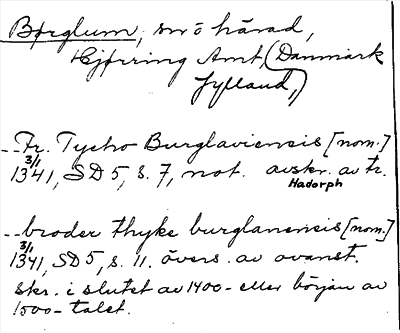 Børglum, sn o härad,
Hjørring Amt, (Danmark
Jylland,)
-- Fr. Tycho Burglaviensis [nom.]
3/1 1341, SD 5, s. 7, not. avskr. av tr.
Hadorph
-- broder thyke burglanensis [nom.]
3/1 1341, SD 5, s. 11. övers. av ovanst.
skr. i slutet av 1400- eller början av
1500-talet.